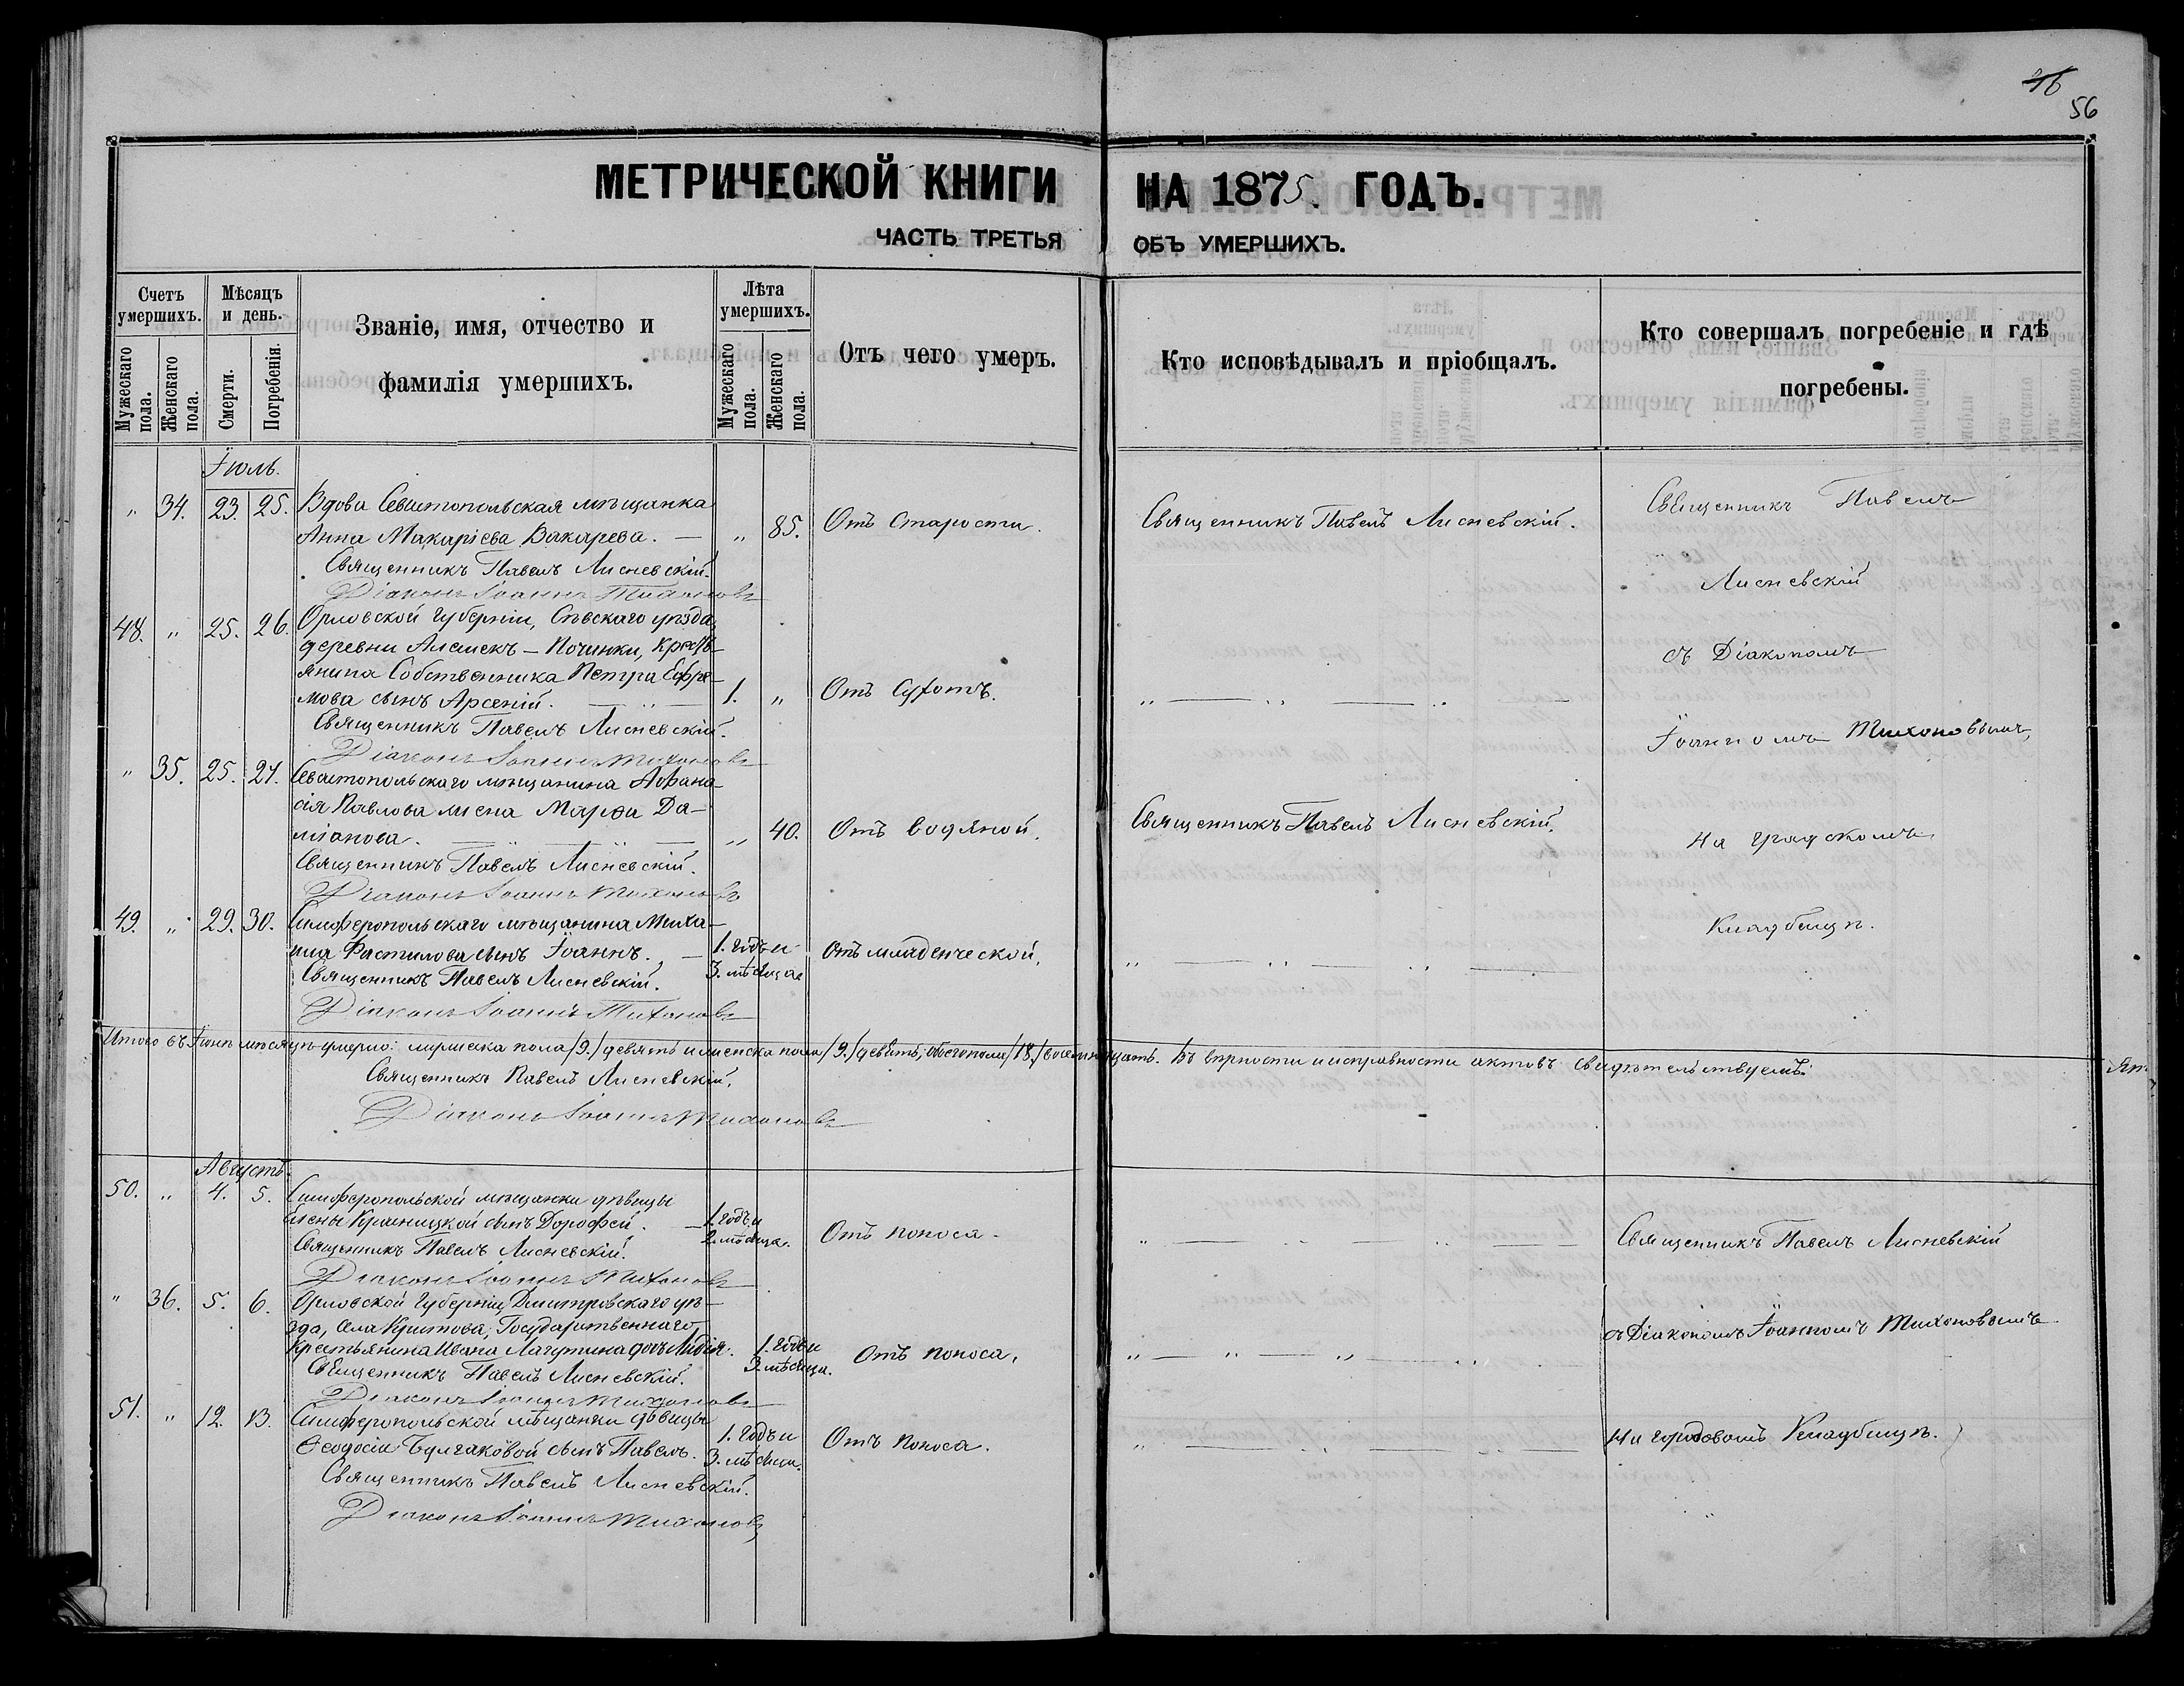 46
56
МЕТРИЧЕСКОЙ КНИГИ НА 1875. ГОДЪ.
ЧАСТЬ ТРЕТЬЯ ОБЪ УМЕРШИХЪ.
Счетъ умершихъ.
Мужескаго пола.
Женскаго пола.
Мѣсяцъ и день.
Смерти.
Погребенія.
Званіе, имя, отчество и
фамилія умершихъ.
Лѣта умершихъ.
Мужескаго пола.
Женскаго пола.
Отъ чего умеръ.
Кто исповѣдывалъ и пріобщалъ.
Кто совершалъ погребеніе и гдѣ
погребены.
Іюль.
„ 34. 23. 25. Вдова Севастопольская мѣщанка
Анна Макаріева Вакарева. — „ 85. Отъ Старости. Священникъ Павелъ Лисневскій. Священникъ Павелъ
Священникъ Павелъ Лисневскій.
Діаконъ Іоаннъ Тихоновъ
Лисневскій
48. „ 25. 26. Орловской Губерніи, Сѣвскаго уѣзда,
деревни Алешекъ — Починки, Кресть-
янина Собственника Петра Ефре-
мова сынъ Арсеній. — „ — 1. „ Отъ Сухотъ. „ — „ — „ —
съ Діакономъ
Священникъ Павелъ Лисневскій.
Діаконъ Іоаннъ Тихоновъ
Іоанномъ Тихоновымъ,
„ 35. 25. 27. Севастопольскаго мѣщанина Афана-
сія Павлова жена Марфа Да-
міанова. — „ 40. Отъ водяной. Священникъ Павелъ Лисневскій.
На градскомъ
Священникъ Павелъ Лисневскій.
Діаконъ Іоаннъ Тихоновъ
49. „ 29. 30. Симферопольскаго мѣщанина Миха-
ила Фистилова сынъ Іоаннъ. — 1. годъ и 3. мѣсяца Отъ младенческой. „ — „ — „ —
Кладбищѣ.
Священникъ Павелъ Лисневскій.
Діаконъ Іоаннъ Тихоновъ
Итого въ Іюлѣ мѣсяцѣ умерло: мужеска пола /9./ девять и женска пола /9./ девять, обоего пола /18./ восемнадцать. Въ вѣрности и исправности актовъ свидѣтельствуемъ:
Священникъ Павелъ Лисневскій.
Діаконъ Іоаннъ Тихоновъ
Августъ.
50. „ 4. 5. Симферопольской мѣщанки дѣвицы
Елены Краницкой сынъ Дорофей. — 1. годъ и 2. мѣсяца. Отъ поноса. „ — „ — „ — Священникъ Павелъ Лисневскій
Священникъ Павелъ Лисневскій.
Діаконъ Іоаннъ Тихоновъ
„ 36. 5. 6. Орловской Губерніи, Дмитровскаго уѣ-
зда, села Кришова, Государственнаго
Крестьянина Ивана Лагутина дочь Лидія. 1. годъ и 3. мѣсяца. Отъ поноса. „ — „ — „ — съ Діакономъ Іоанномъ Тихоновымъ
Священникъ Павелъ Лисневскій.
Діаконъ Іоаннъ Тихоновъ
51. „ 12. 13. Симферопольской мѣщанки дѣвицы
Ѳеодосіи Булгаковой сынъ Павелъ. 1. годъ и 3. мѣсяца. Отъ поноса. „ — „ — На городовомъ Кладбищѣ.
Священникъ Павелъ Лисневскій.
Діаконъ Іоаннъ Тихоновъ